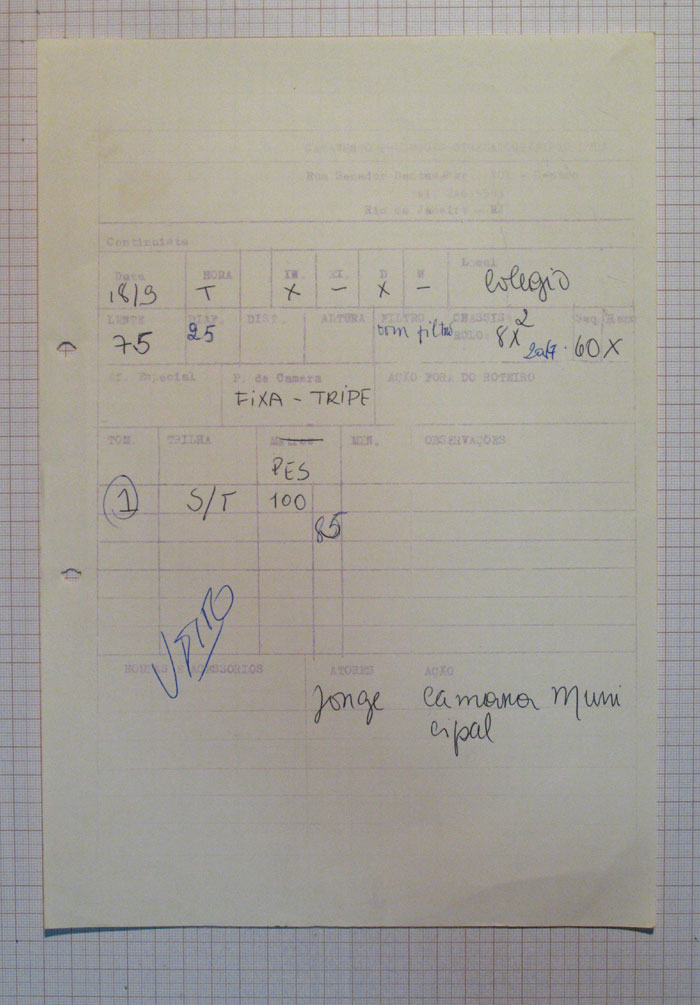 Rua Senador Dantas
Rio de Janeiro - RJ
Continuista
Data HORA IN. EX. D N Local
18/9 T X - X - Colegio
LENTE DIAF. DIST. ALTURA FILTRO CHASSIS Seq.
75 25 com filtro ROLO: 8X2 60X
Ef. Especial P. de Camera AÇÃO FORA DO ROTEIRO
FIXA - TRIPE
TOM. TRILHA Metros MIN. OBSERVAÇÕES
PES
1 S/T 100
85
ROUPAS E ACESSORIOS ATORES AÇÃO
Jorge Camara Muni
cipal